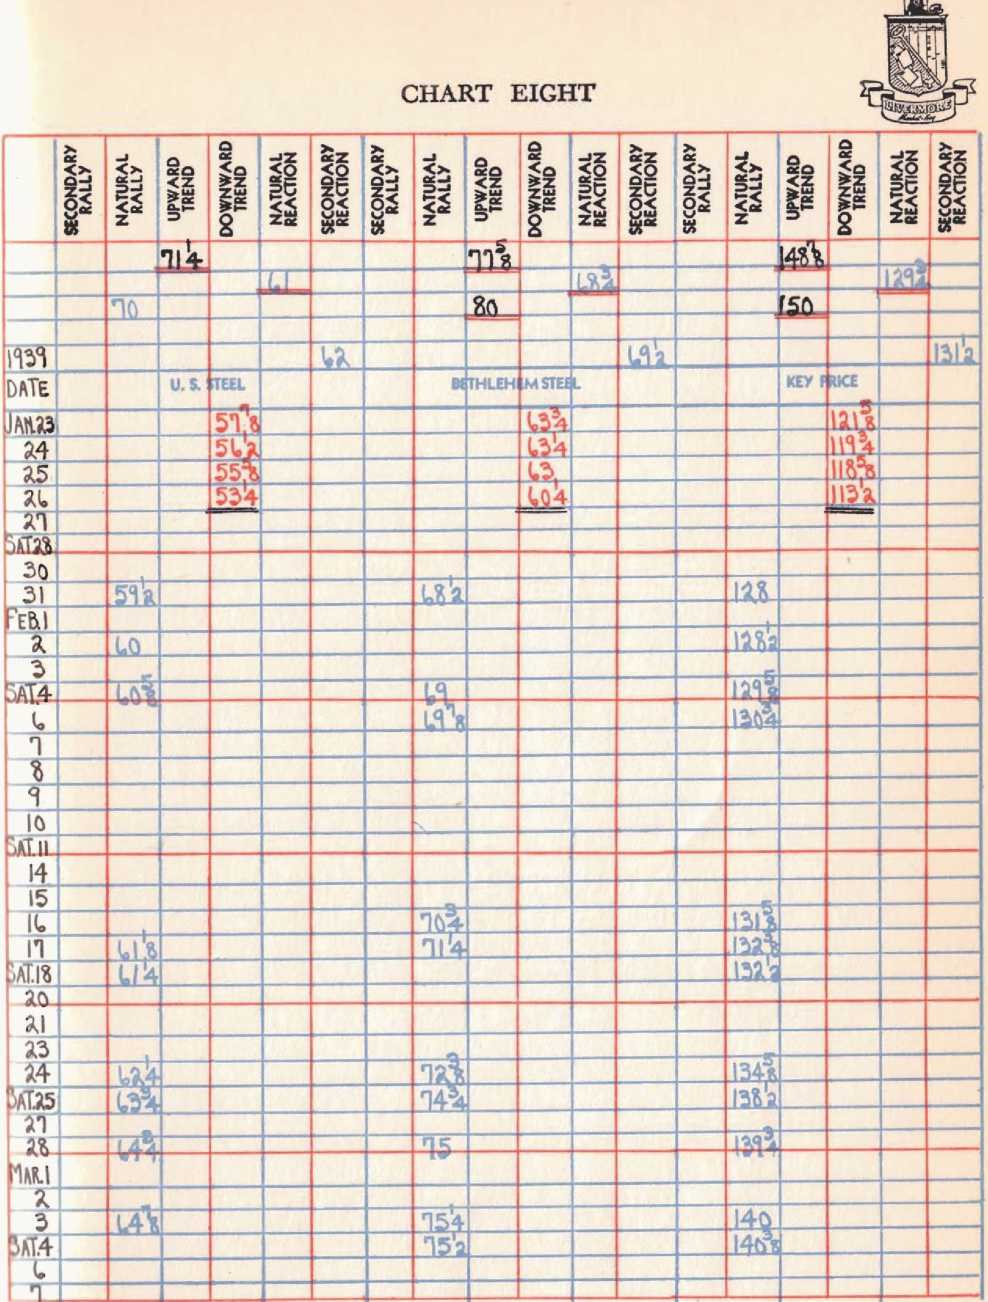 CHART EIGHT
LIVERMORE
Market Key
SECONDARY RALLY NATURAL RALLY UPWARD TREND DOWNWARD TREND NATURAL REACTION SECONDARY REACTION SECONDARY RALLY NATURAL RALLY UPWARD TREND DOWNWARD TREND NATURAL REACTION SECONDARY REACTION SECONDARY RALLY NATURAL RALLY UPWARD TREND DOWNWARD TREND NATURAL REACTION SECONDARY REACTION
71 1/4 77 5/8 148 7/8
61 68 3/4 129 3/4
70 80 150
1939 62 69 1/2 131 1/2
DATE U. S. STEEL BETHLEHEM STEEL KEY PRICE
JAN.23 57 7/8 63 3/4 121 5/8
24 56 1/2 63 1/4 119 3/4
25 55 5/8 63 118 5/8
26 53 1/4 60 1/4 113 1/2
27
SAT.28
30
31 59 1/2 68 1/2 128
FEB.1
2 60 128 1/2
3
SAT.4 60 5/8 69 129 5/8
6 69 7/8 130 3/4
7
8
9
10
SAT.11
14
15
16 70 3/4 131 5/8
17 61 1/8 71 1/4 132 3/8
SAT.18 61 1/4 132 1/2
20
21
23
24 62 1/4 72 3/8 134 5/8
SAT.25 63 3/4 74 3/4 138 1/2
27
28 64 3/4 75 139 3/4
MAR.1
2
3 64 7/8 75 1/4 140
SAT.4 75 1/2 140 3/8
6
7